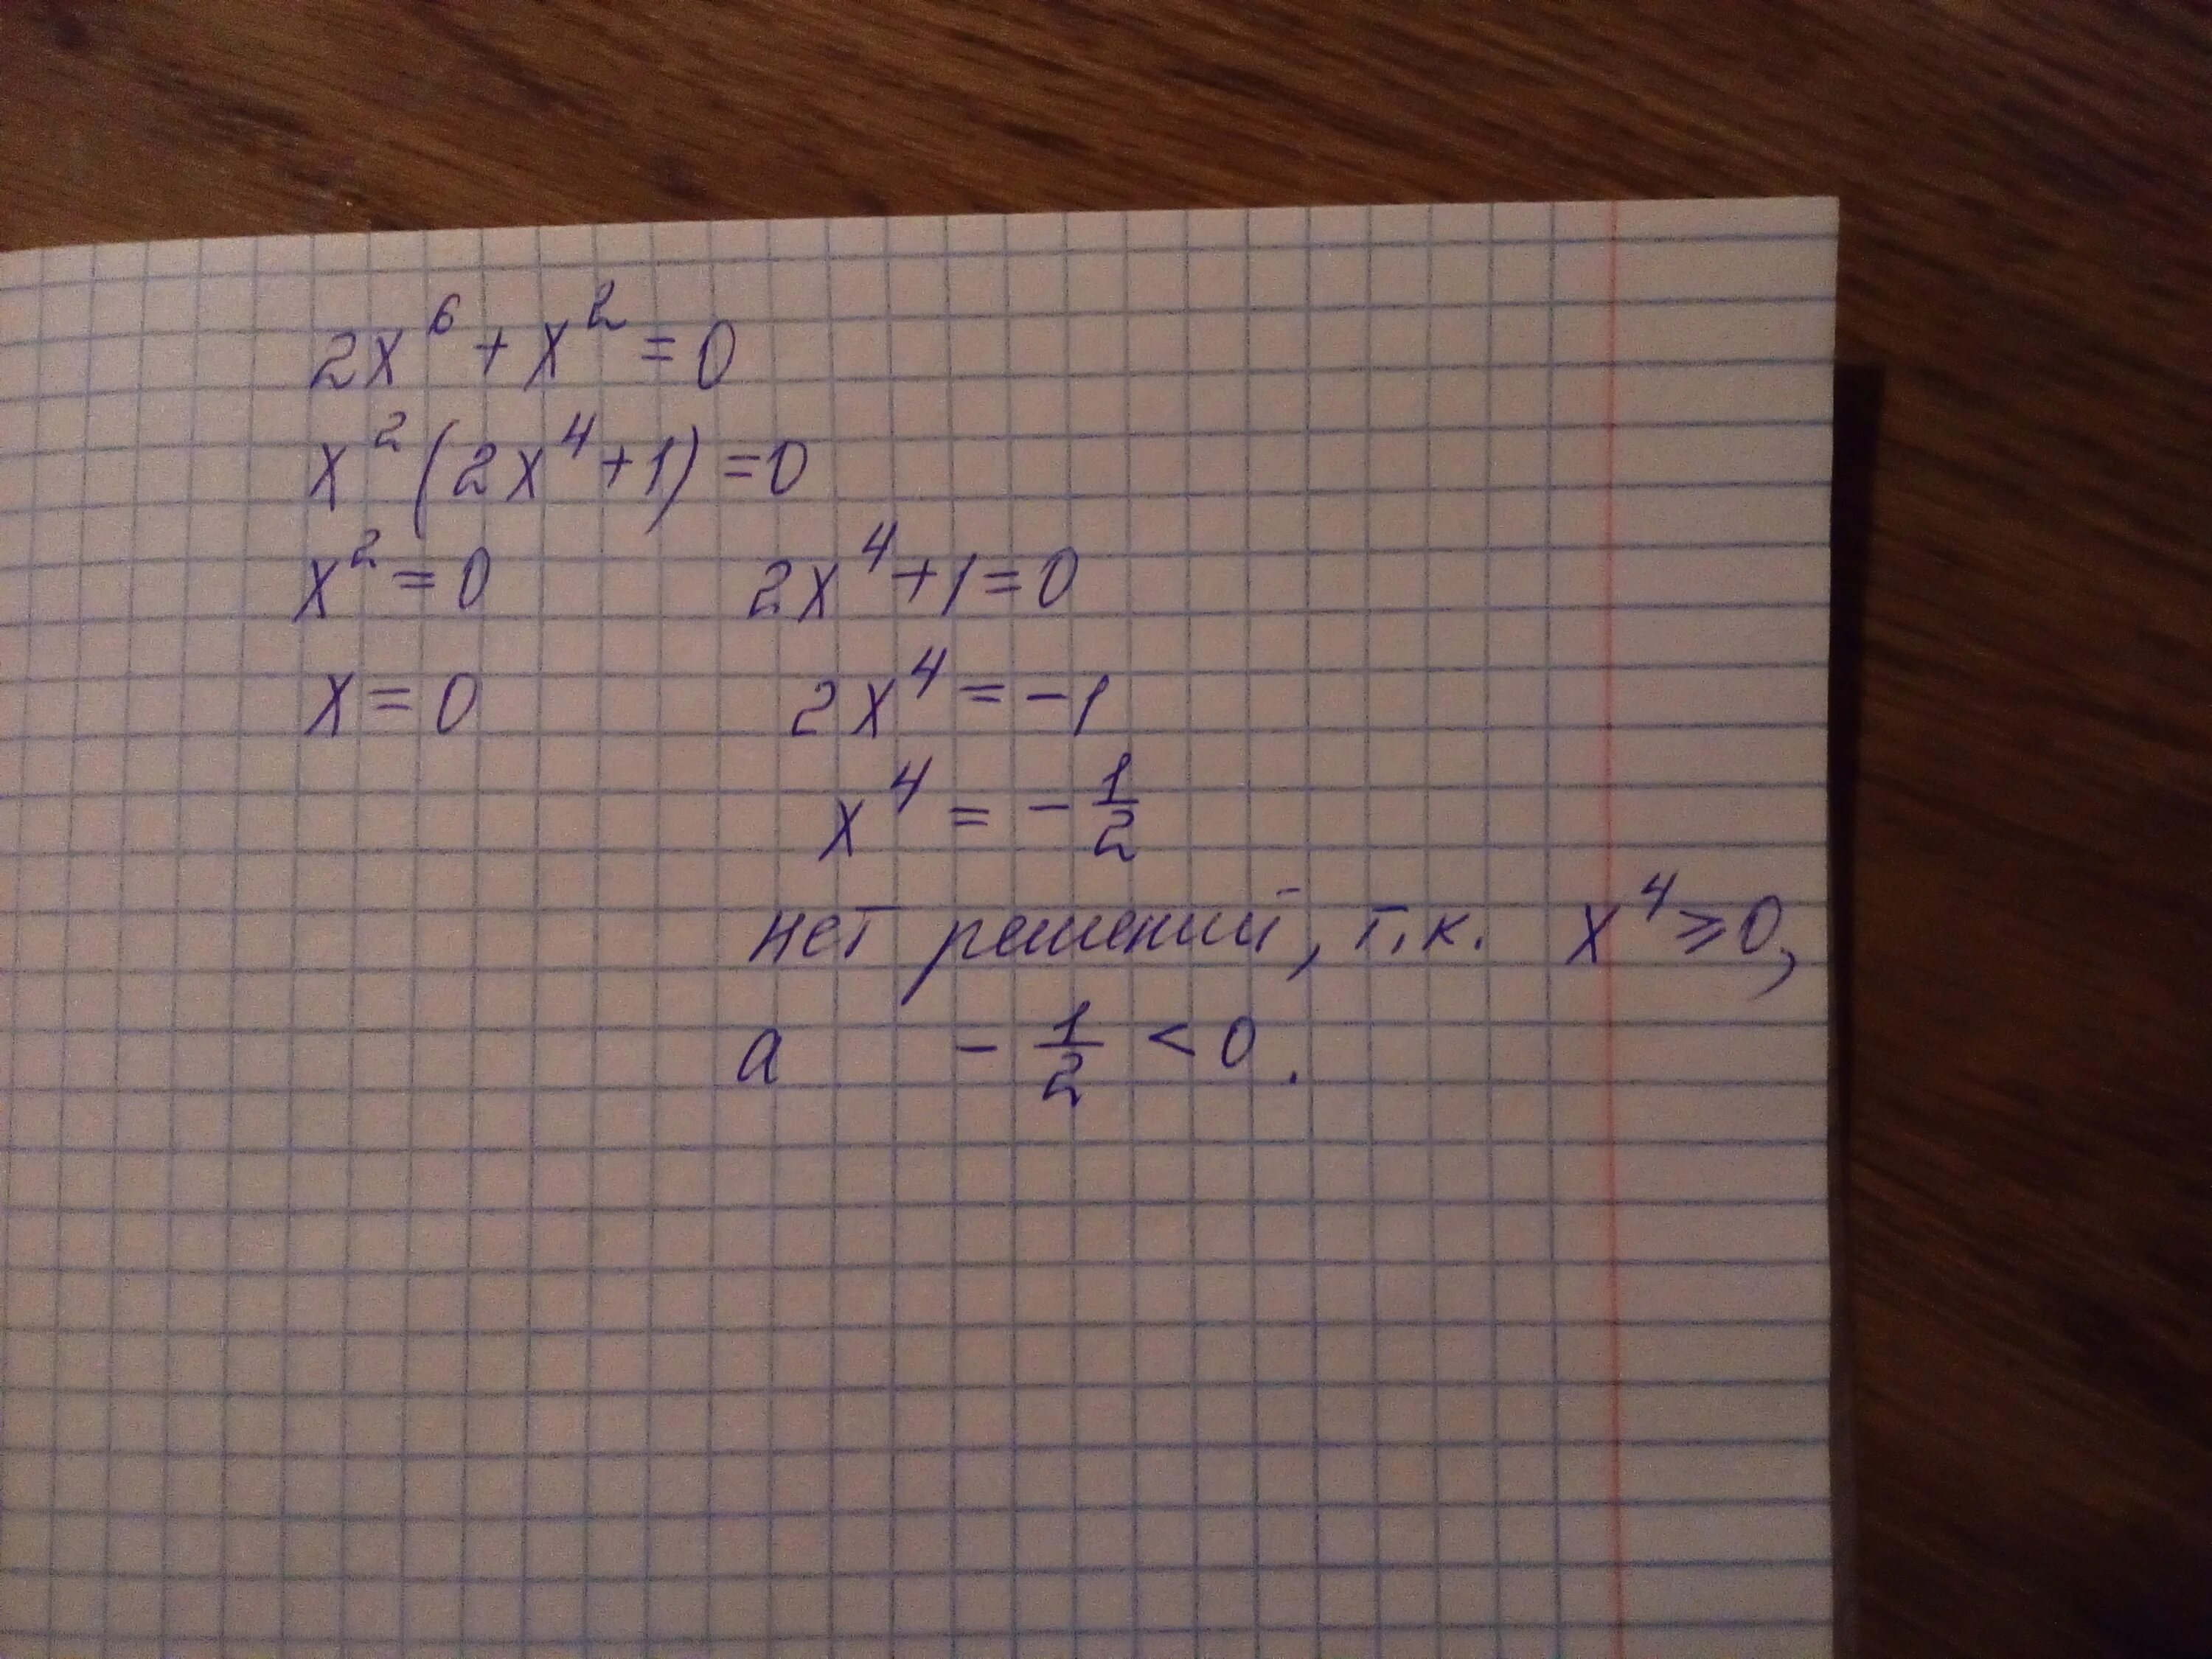 2x⁶ + x² = 0
x² (2x⁴ + 1) = 0
x² = 0 2x⁴ + 1 = 0
x = 0 2x⁴ = -1
x⁴ = - 1/2
нет решений, т.к. x⁴ ⩾ 0,
а - 1/2 < 0.